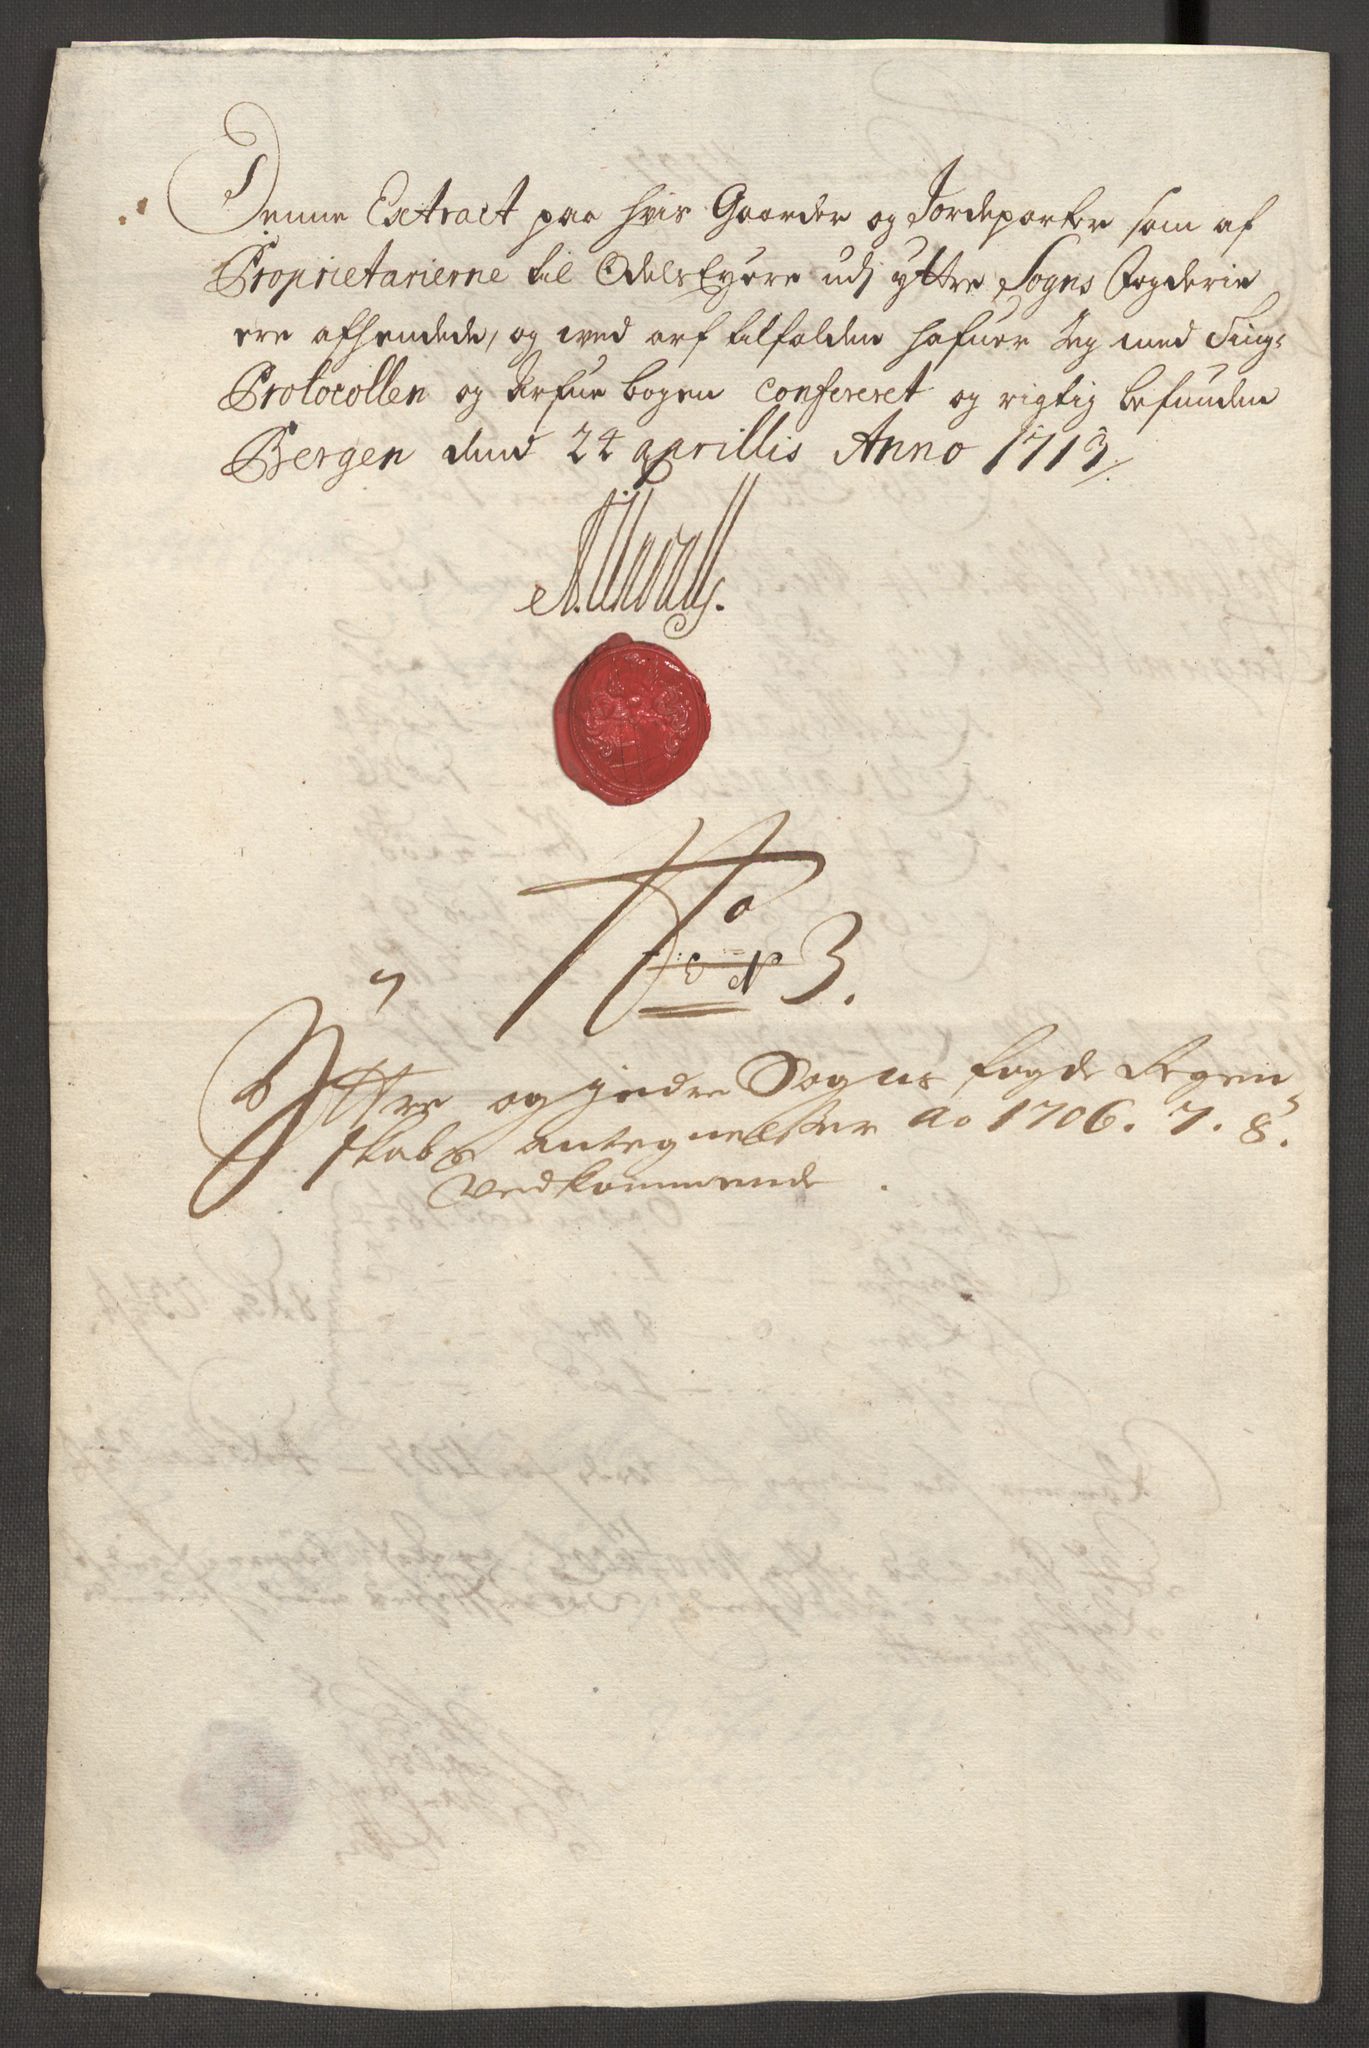 Denne Extract paa hvis Gaarder og Jordeparter som af
Proprietarierne til OdelsEyere udj yttre Sogns Fogderie
ere afhendede, og wed arf tilfalden hafuer Jeg med Ting-
Protocollen og Arfue bogen Confereret og rigtig befunden
Bergen dend 24 aprillis Anno 1713.
No 3.
Yttre og jndre Sogns fogde Regen
skabs antegnelsser Ao 1706. 7. 8.
Vedkommende.